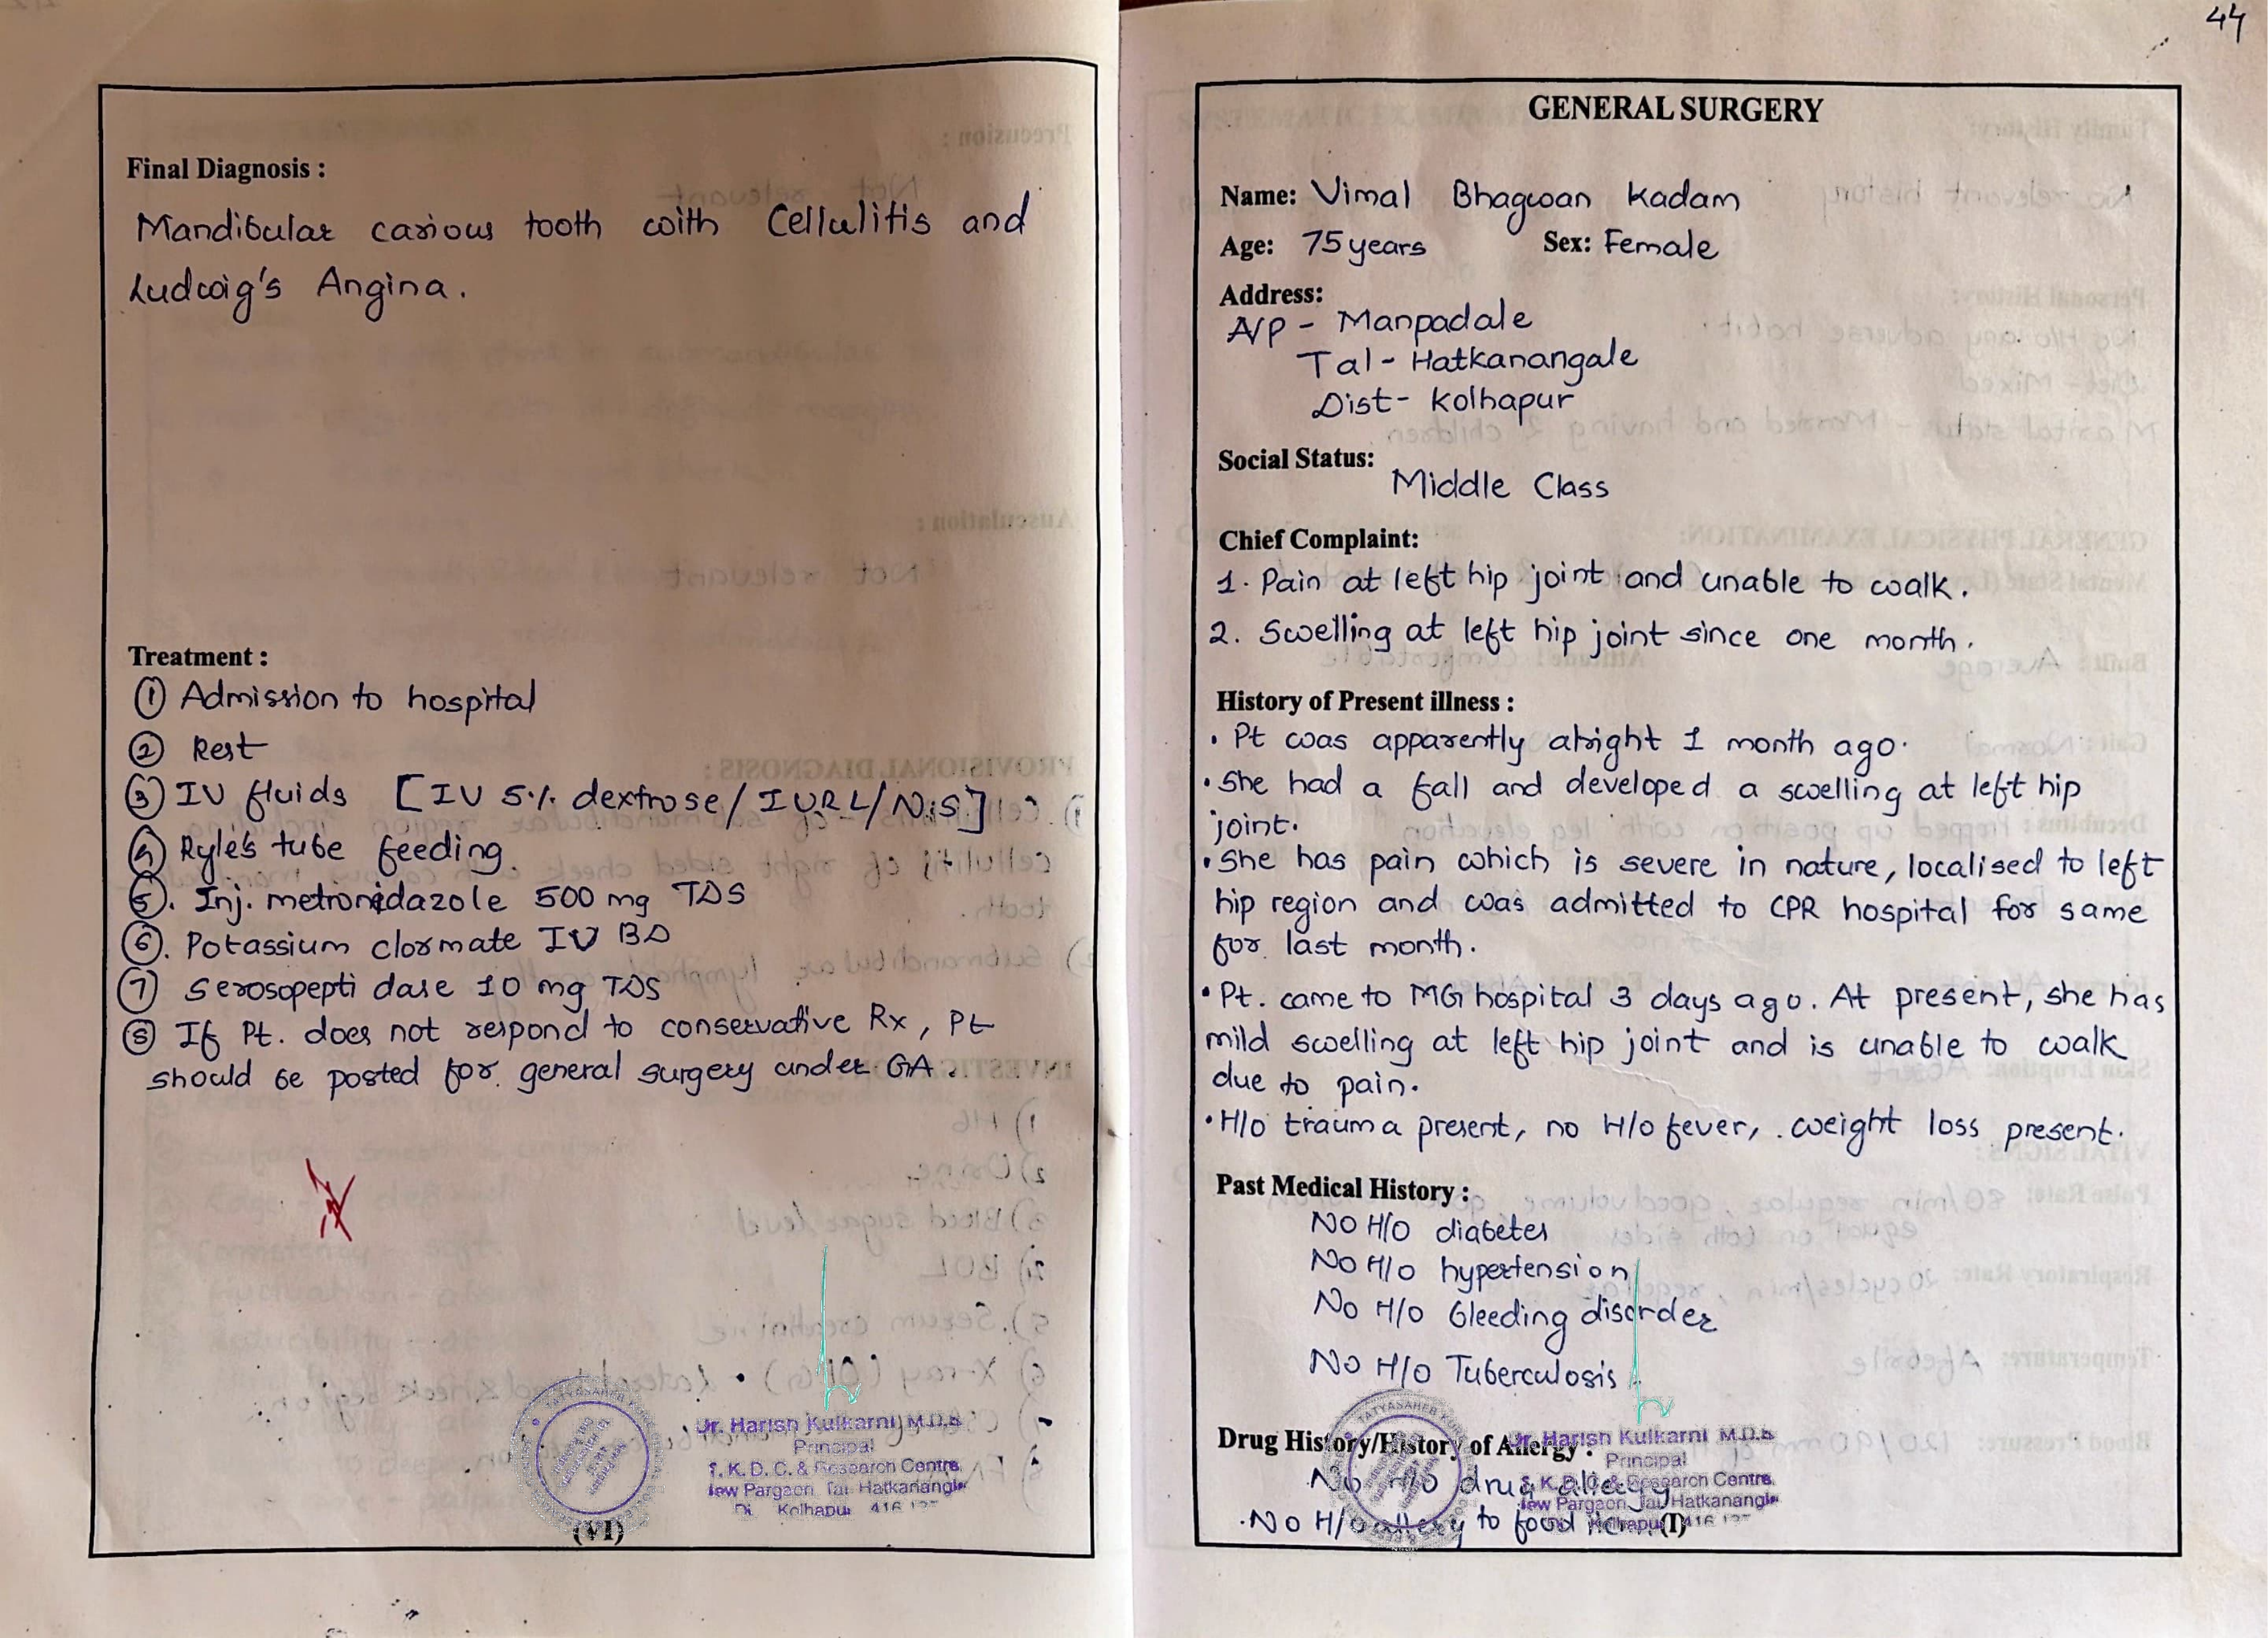 Final Diagnosis :
Mandibular carious tooth with Cellulitis and
Ludwig's Angina.
Treatment :
① Admission to hospital
② Rest
③ IV fluids [IV 5% dextrose/IVRL/N.S]
④ Ryle's tube feeding.
⑤. Inj. metronidazole 500 mg TDS
⑥. Potassium clormate IV BD
⑦ Serosopepti dase 10 mg TDS
⑧ If Pt. does not respond to conservative Rx, Pt
should be posted for general surgery under GA.
Dr. Harish Kulkarni M.D.S
Principal
T. K. D. C. & Research Centre
New Pargaon, Tal Hatkanangle
Di. Kolhapur 416 137
(VI)
44
GENERAL SURGERY
Name: Vimal Bhagwan Kadam
Age: 75 years Sex: Female
Address:
A/P - Manpadale
Tal - Hatkanangale
Dist - Kolhapur
Social Status:
Middle Class
Chief Complaint:
1. Pain at left hip joint and unable to walk.
2. Swelling at left hip joint since one month.
History of Present illness :
• Pt was apparently alright 1 month ago.
• She had a fall and developed a swelling at left hip
joint.
• She has pain which is severe in nature, localised to left
hip region and was admitted to CPR hospital for same
for last month.
• Pt. came to MG hospital 3 days ago. At present, she has
mild swelling at left hip joint and is unable to walk
due to pain.
• H/o trauma present, no H/o fever, weight loss present.
Past Medical History :
No H/o diabetes
No H/o hypertension
No H/o bleeding disorder
No H/o Tuberculosis
Drug History/History of Allergy :
No H/o drug allergy
. No H/o allergy to food
Dr. Harish Kulkarni M.D.S
Principal
T. K. D. C. & Research Centre
New Pargaon, Tal Hatkanangle
Kolhapur 416 137
(I)